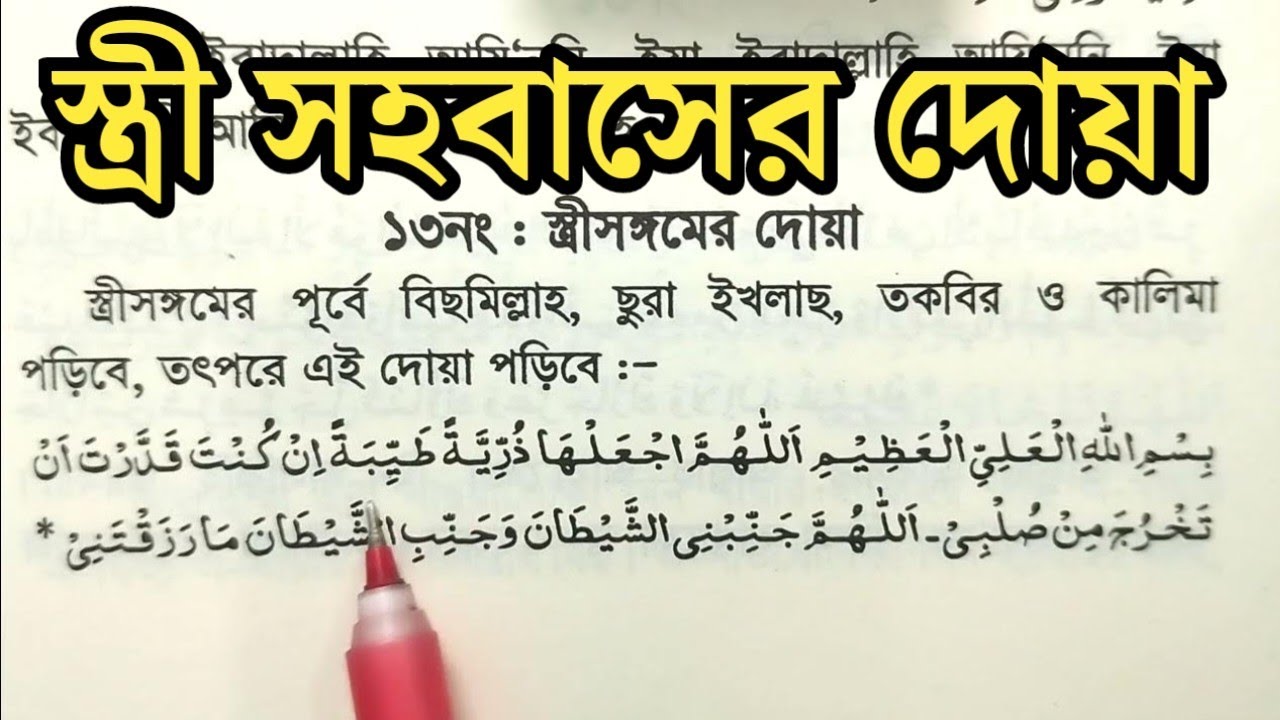 স্ত্রী সহবাসের দোয়া
১৩নং : স্ত্রীসঙ্গমের দোয়া
স্ত্রীসঙ্গমের পূর্বে বিছমিল্লাহ, ছুরা ইখলাছ, তকবির ও কালিমা
পড়িবে, তৎপরে এই দোয়া পড়িবে :–
بِسْمِ اللهِ الْعَلِيِّ الْعَظِيْمِ اَللّٰهُمَّ اجْعَلْهَا ذُرِّيَّةً طَيِّبَةً اِنْ كُنْتَ قَدَّرْتَ اَنْ
تَخْرُجَ مِنْ صُلْبِىْ ـ اَللّٰهُمَّ جَنِّبْنِى الشَّيْطَانَ وَجَنِّبِ الشَّيْطَانَ مَا رَزَقْتَنِىْ *